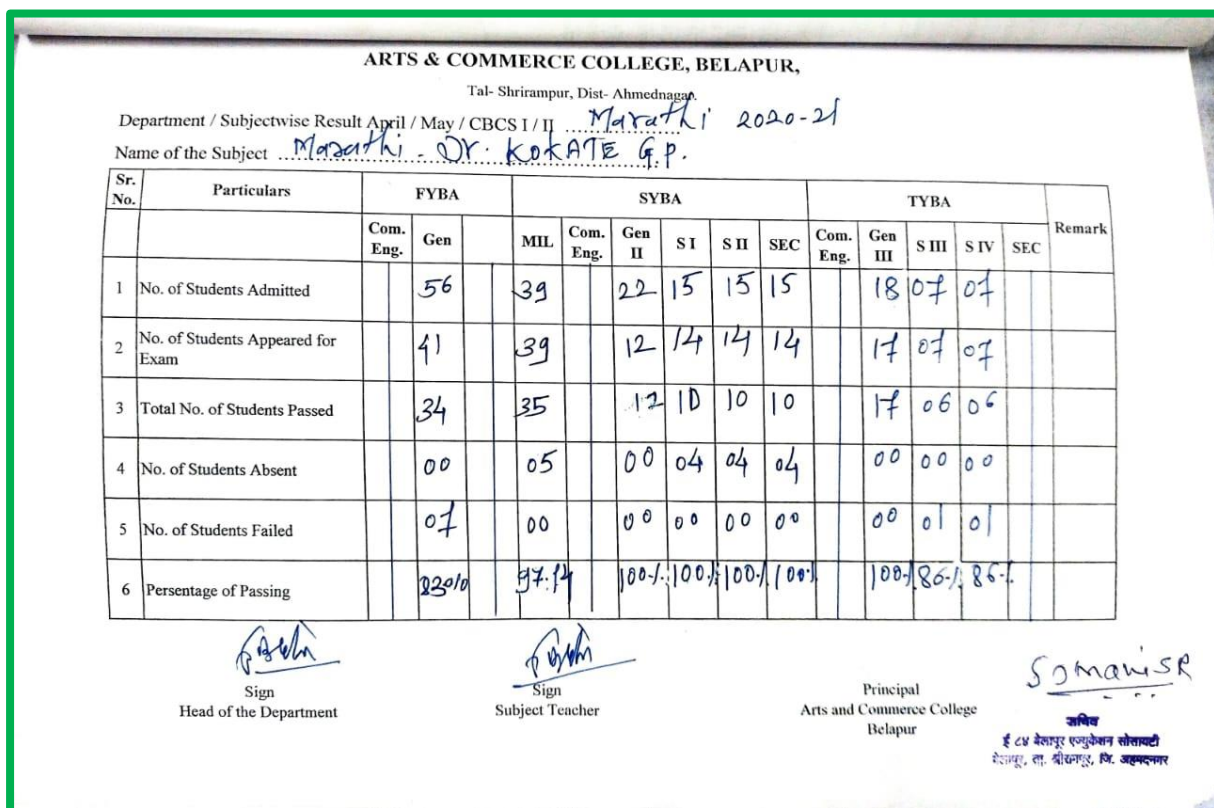 ARTS & COMMERCE COLLEGE, BELAPUR,
Tal- Shrirampur, Dist- Ahmednagar.
Department / Subjectwise Result April / May / CBCS I / II Marathi 2020-21
Name of the Subject Marathi - Dr. KOKATE G.P.
Sr. No. Particulars FYBA SYBA TYBA Remark
Com. Eng. Gen MIL Com. Eng. Gen II S I S II SEC Com. Eng. Gen III S III S IV SEC
1 No. of Students Admitted 56 39 22 15 15 15 18 07 07
2 No. of Students Appeared for Exam 41 39 12 14 14 14 17 07 07
3 Total No. of Students Passed 34 35 12 10 10 10 17 06 06
4 No. of Students Absent 00 05 00 04 04 04 00 00 00
5 No. of Students Failed 07 00 00 00 00 00 00 01 01
6 Persentage of Passing 83% 97.14 100% 100% 100% 100% 100% 86% 86%
Sign Sign Principal SomaniSR
Head of the Department Subject Teacher Arts and Commerce College
Belapur
सचिव
ई ८४ बेलापूर एज्युकेशन सोसायटी
बेलापूर, ता. श्रीरामपूर, जि. अहमदनगर